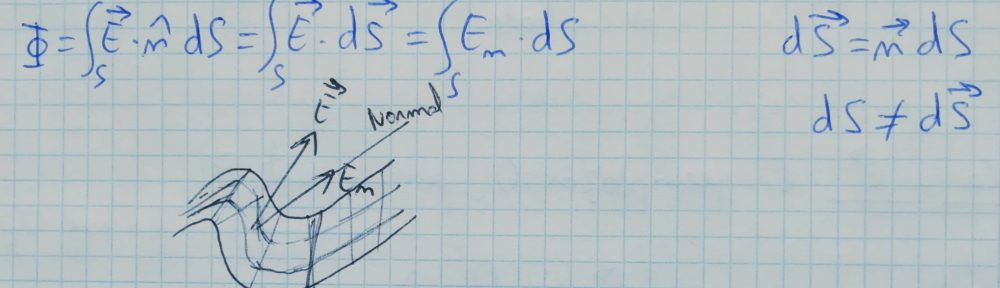 Φ = ∫_S E⃗ · n̂ dS = ∫_S E⃗ · dS⃗ = ∫_S E_n · dS
dS⃗ = n⃗ dS
dS ≠ dS⃗
E⃗
Normal
E_n